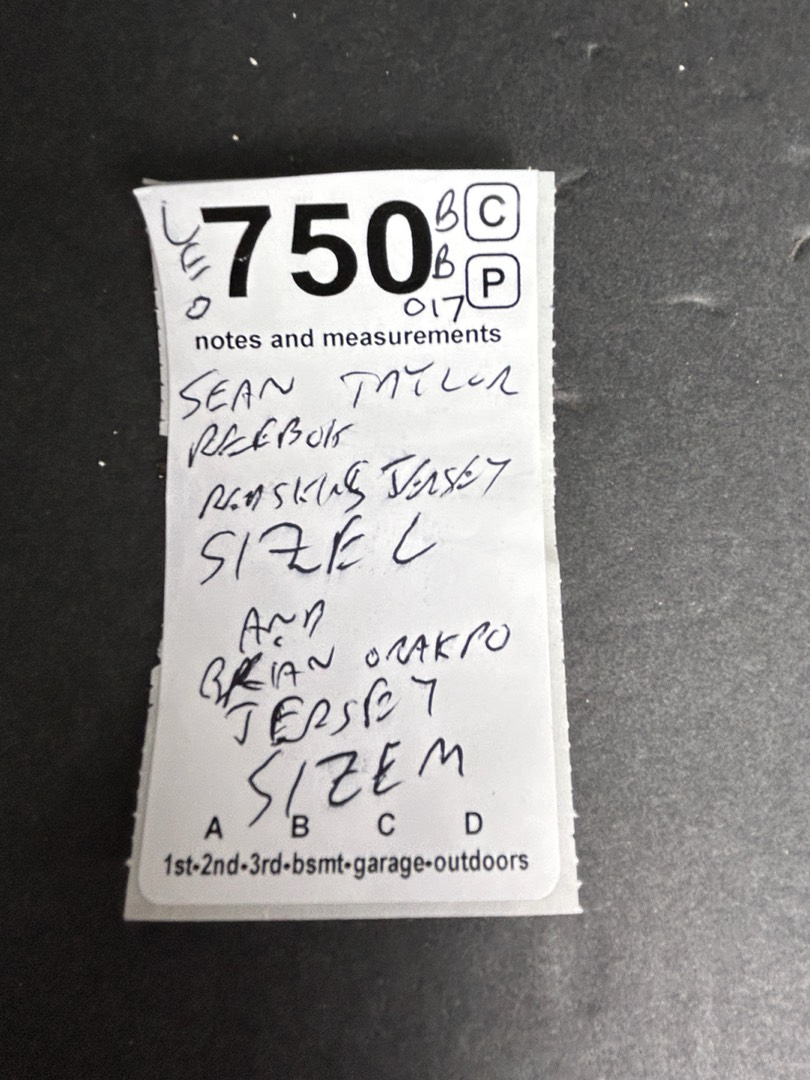 750 B C
B P
017
notes and measurements
SEAN TAYLOR
REEBOK
REDSKINS JERSEY
SIZE L
AND
BRIAN ORAKPO
JERSEY
SIZE M
A B C D
1st-2nd-3rd-bsmt-garage-outdoors